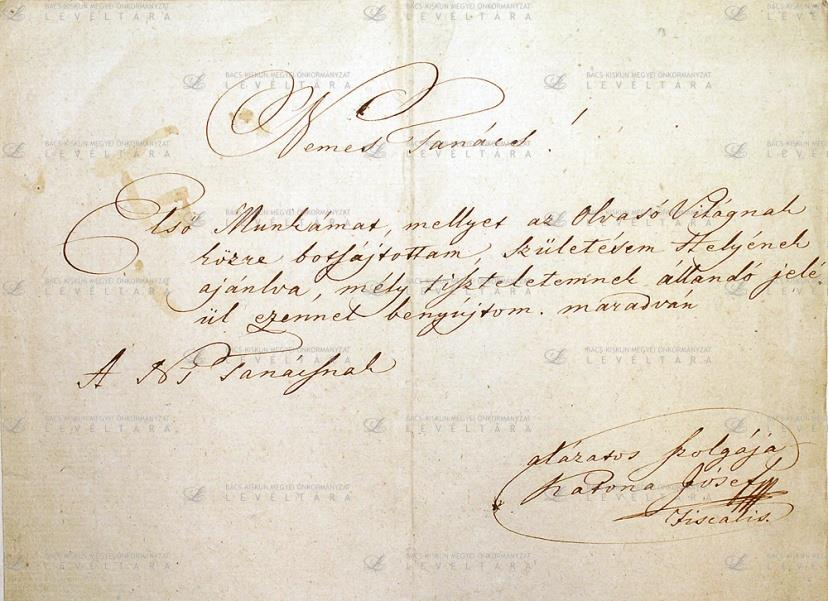 Nemes Tanács!
Első Munkámat, mellyet az Olvasó Világnak
közre botsájtottam, Születésem Helyének
ajánlva, mély tiszteletemnek állandó jelé-
ül ezennel benyújtom. maradván
A Ns Tanátsnak
alázatos szolgája
Katona Jósef
Fiscalis.
BÁCS-KISKUN MEGYEI ÖNKORMÁNYZAT
LEVÉLTÁRA